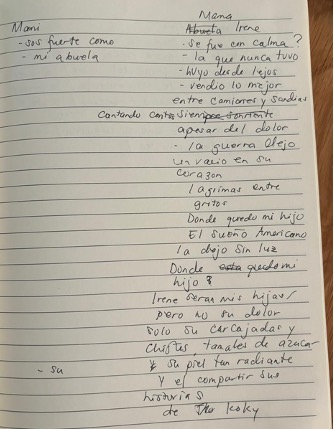 Mami
- sos fuerte como
- mi abuela
Mama
Abuela Irene
- Se fue con calma?
- la que nunca tuvo
- huyo desde lejos
- vendio lo mejor
entre camiones y sandias
Cantando siempre sonriente
apesar del dolor
- la guerra dejo
un vacio en su
corazon
lagrimas entre
gritos
Donde quedo mi hijo
El sueño Americano
la dejo sin luz
Donde esta quedo mi
hijo?
Irene seran mis hijas
pero no su dolor
solo su carcajadas y
chistes, tamales de azucar
y su piel tan radiante
- su
Y el compartir sus
historias
de Koky